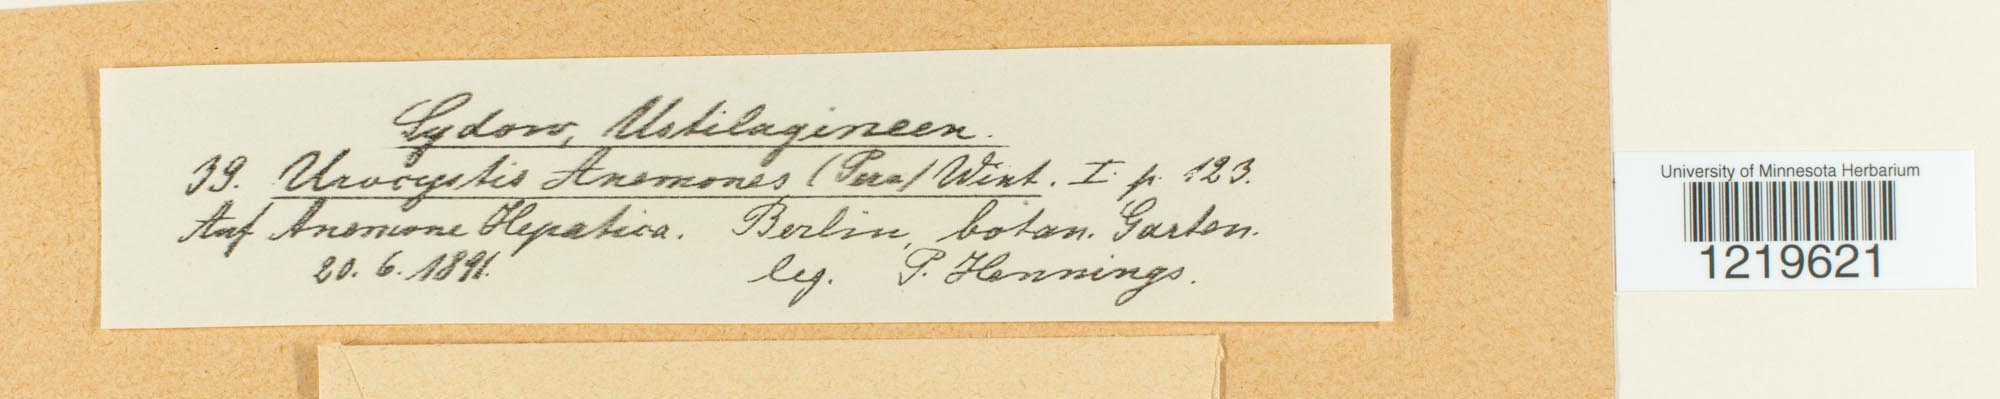 Sydow, Ustilagineen.
39. Urocystis Anemones (Pers) Wint. I. p. 123.
Auf Anemone Hepatica. Berlin, botan. Garten.
20. 6. 1891. leg. P. Hennings.
University of Minnesota Herbarium
1219621